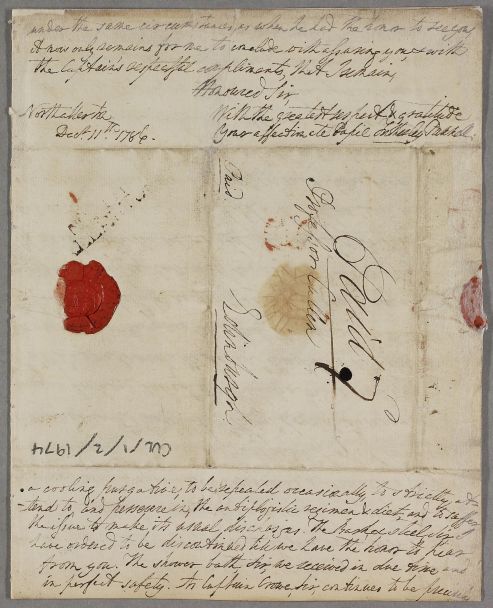 under the same circumstances, as when he had the honor to receive,
it now only remains for me to conclude with assuring you & with
the Captain's respectful compliments, that I remain,
Honoured Sir,
With the greatest respect & gratitude
Northallerton
Decr. 11th. 1786.
Your affectionate Pupil
Paid
Professor Cullen
Paid 7
Edinburgh
CUL/1/2/1974
a cooling purgative, to be repeated occasionally, to strictly at-
tend to, and persevere in, the antiphlogistic regimen & diet, and to suffer
the issue to make its usual discharges. The
have ordered to be discontinued till we have the honor to hear
from you. The shower bath, Sir, we received in due time and
in perfect safety. As Captain Crowe, Sir, continues to be